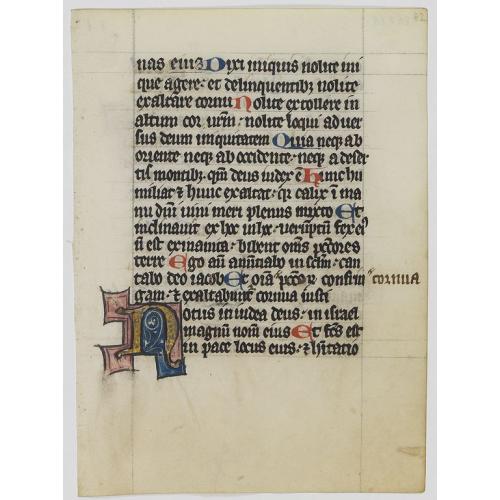 nas eius Dixi iniquis nolite ini
que agere· et delinquentibȝ nolite
exaltare cornu Nolite extollere in
altum cor urm̄· nolite loqui adver
sus deum iniquitatem Quia neqȝ ab
oriente neqȝ ab occidente· neqȝ a deser
tis montibȝ· qm̄ deus iudex ē Hunc hu
miliat ⁊ hunc exaltat· qr calix ī ma
nu dn̄i uini meri plenus mixto Et
inclinauit ex hoc in hoc· ueruptn̄ fex eiꝰ
n̄ est exinanita· bibent oms̄ pctōres
terre Ego aū annūtiabo in sclm̄· can
tabo deo iacob Et oīa pctōꝝ confrin cornua
gam· ⁊ exaltabunt̄ cornua iusti
Notus in iudea deus· in israel
magnum nom̄ eius Et fcs̄ est
in pace locus eius· ⁊ hītatio